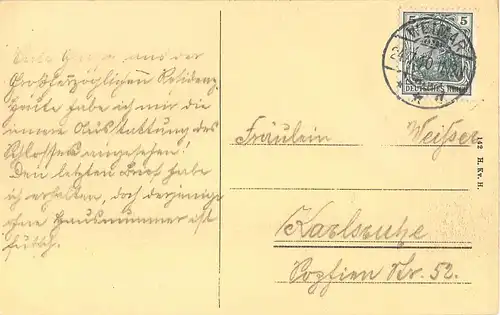 Beste Grüsse aus der
Großherzoglichen Residenz.
Heute habe ich mir die
innere Ausstattung des
Schlosses angesehen!
Den letzten Brief habe
ich erhalten, doch derjenige
ohne Hausnummer ist
futsch.
5 5
WEIMAR
DEUTSCHES REICH
Fräulein Weißer
Karlsruhe
Sophien Str. 52.
142 H. Kv. H.